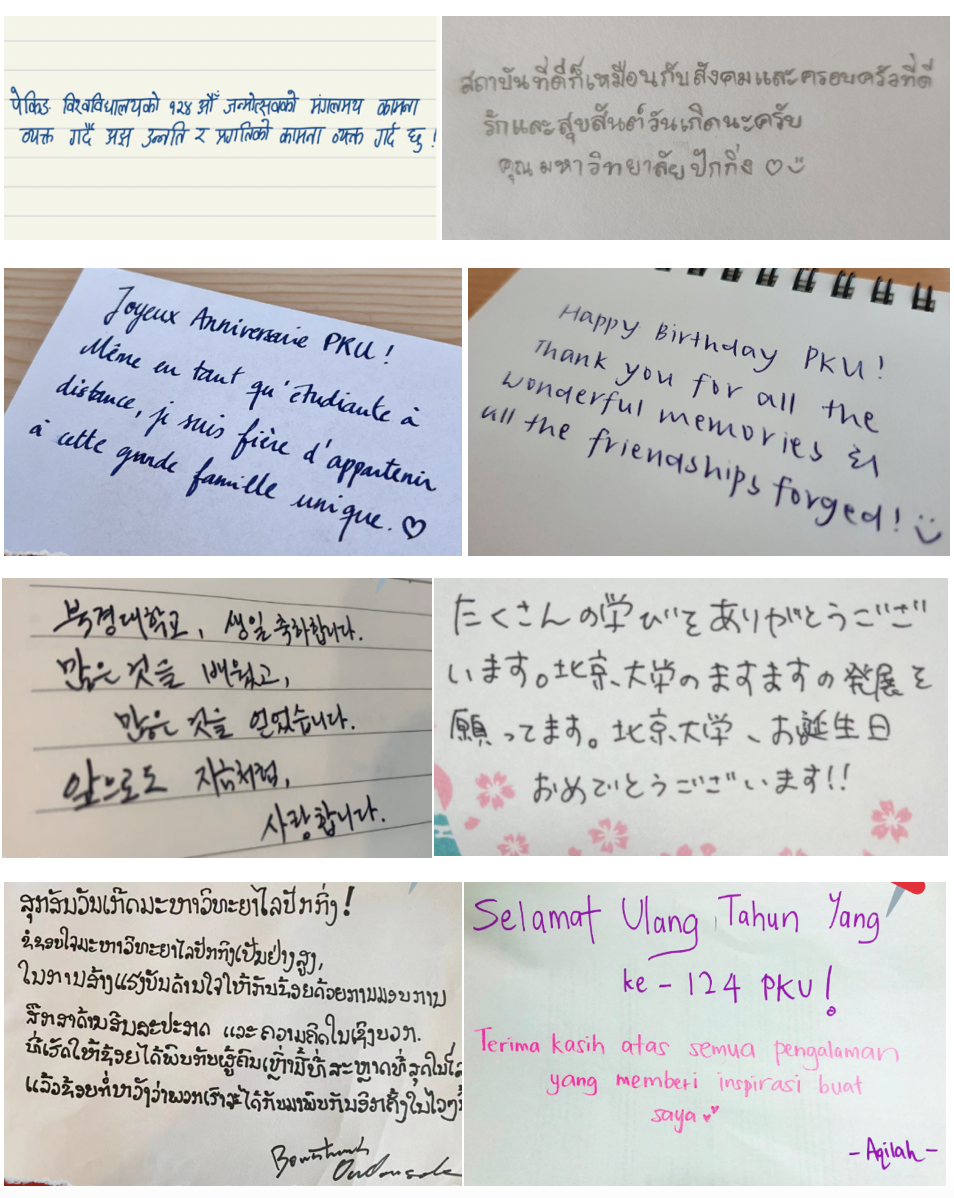 पेकिङ विश्वविद्यालयको १२४ औँ जन्मोत्सवको मंगलमय कामना
व्यक्त गर्दै अझ उन्नति र प्रगतिको कामना व्यक्त गर्द छु !
สถาบันที่ดีก็เหมือนกับสังคมและครอบครัวที่ดี
รักและสุขสันต์วันเกิดนะครับ
คุณมหาวิทยาลัยปักกิ่ง ♡
Joyeux Anniversaire PKU !
Même en tant qu'étudiante à
distance, je suis fière d'appartenir
à cette grande famille unique. ♡
Happy Birthday PKU !
Thank you for all the
wonderful memories &
all the friendships forged !
북경대학교, 생일 축하합니다.
많은 것을 배웠고,
많은 것을 얻었습니다.
앞으로도 지금처럼,
사랑합니다.
たくさんの学びをありがとうござ
います。北京大学のますますの発展を
願ってます。北京大学、お誕生日
おめでとうございます!!
ສຸກສັນວັນເກີດມະຫາວິທະຍາໄລປັກກິ່ງ!
ຂໍຂອບໃຈມະຫາວິທະຍາໄລປັກກິ່ງເປັນຢ່າງສູງ,
ໃນການສ້າງແຮງບັນດານໃຈໃຫ້ກັບຂ້ອຍດ້ວຍການມອບການ
ສຶກສາດ້ານສິນລະປະສາດ ແລະ ຄວາມຄິດໃນເຊີງບວກ.
ທີ່ເຮັດໃຫ້ຂ້ອຍໄດ້ພົບກັບຜູ້ຄົນເຫຼົ່ານີ້ທີ່ສະຫຼາດທີ່ສຸດໃນ
ແລ້ວຂ້ອຍກໍ່ຫວັງວ່າພວກເຮົາຈະໄດ້ກັບມາພົບກັນອີກຄັ້ງໃນໄວໆ
Selamat Ulang Tahun Yang
ke - 124 PKU !
Terima kasih atas semua pengalaman
yang memberi inspirasi buat
saya
- Aqilah -